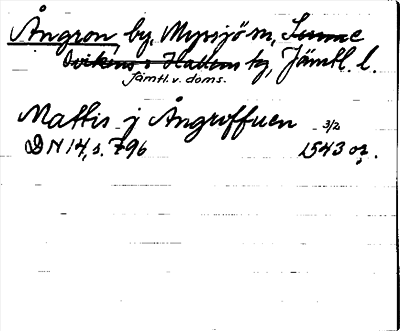 Ångron, by, Myssjö sn, Sunne
Ovikens o Hallens tg, Jämtl. l.
Jämtl. v. doms.
Mattis j Ångroffuen 3/2
DN 14, s. 796 1543 or.